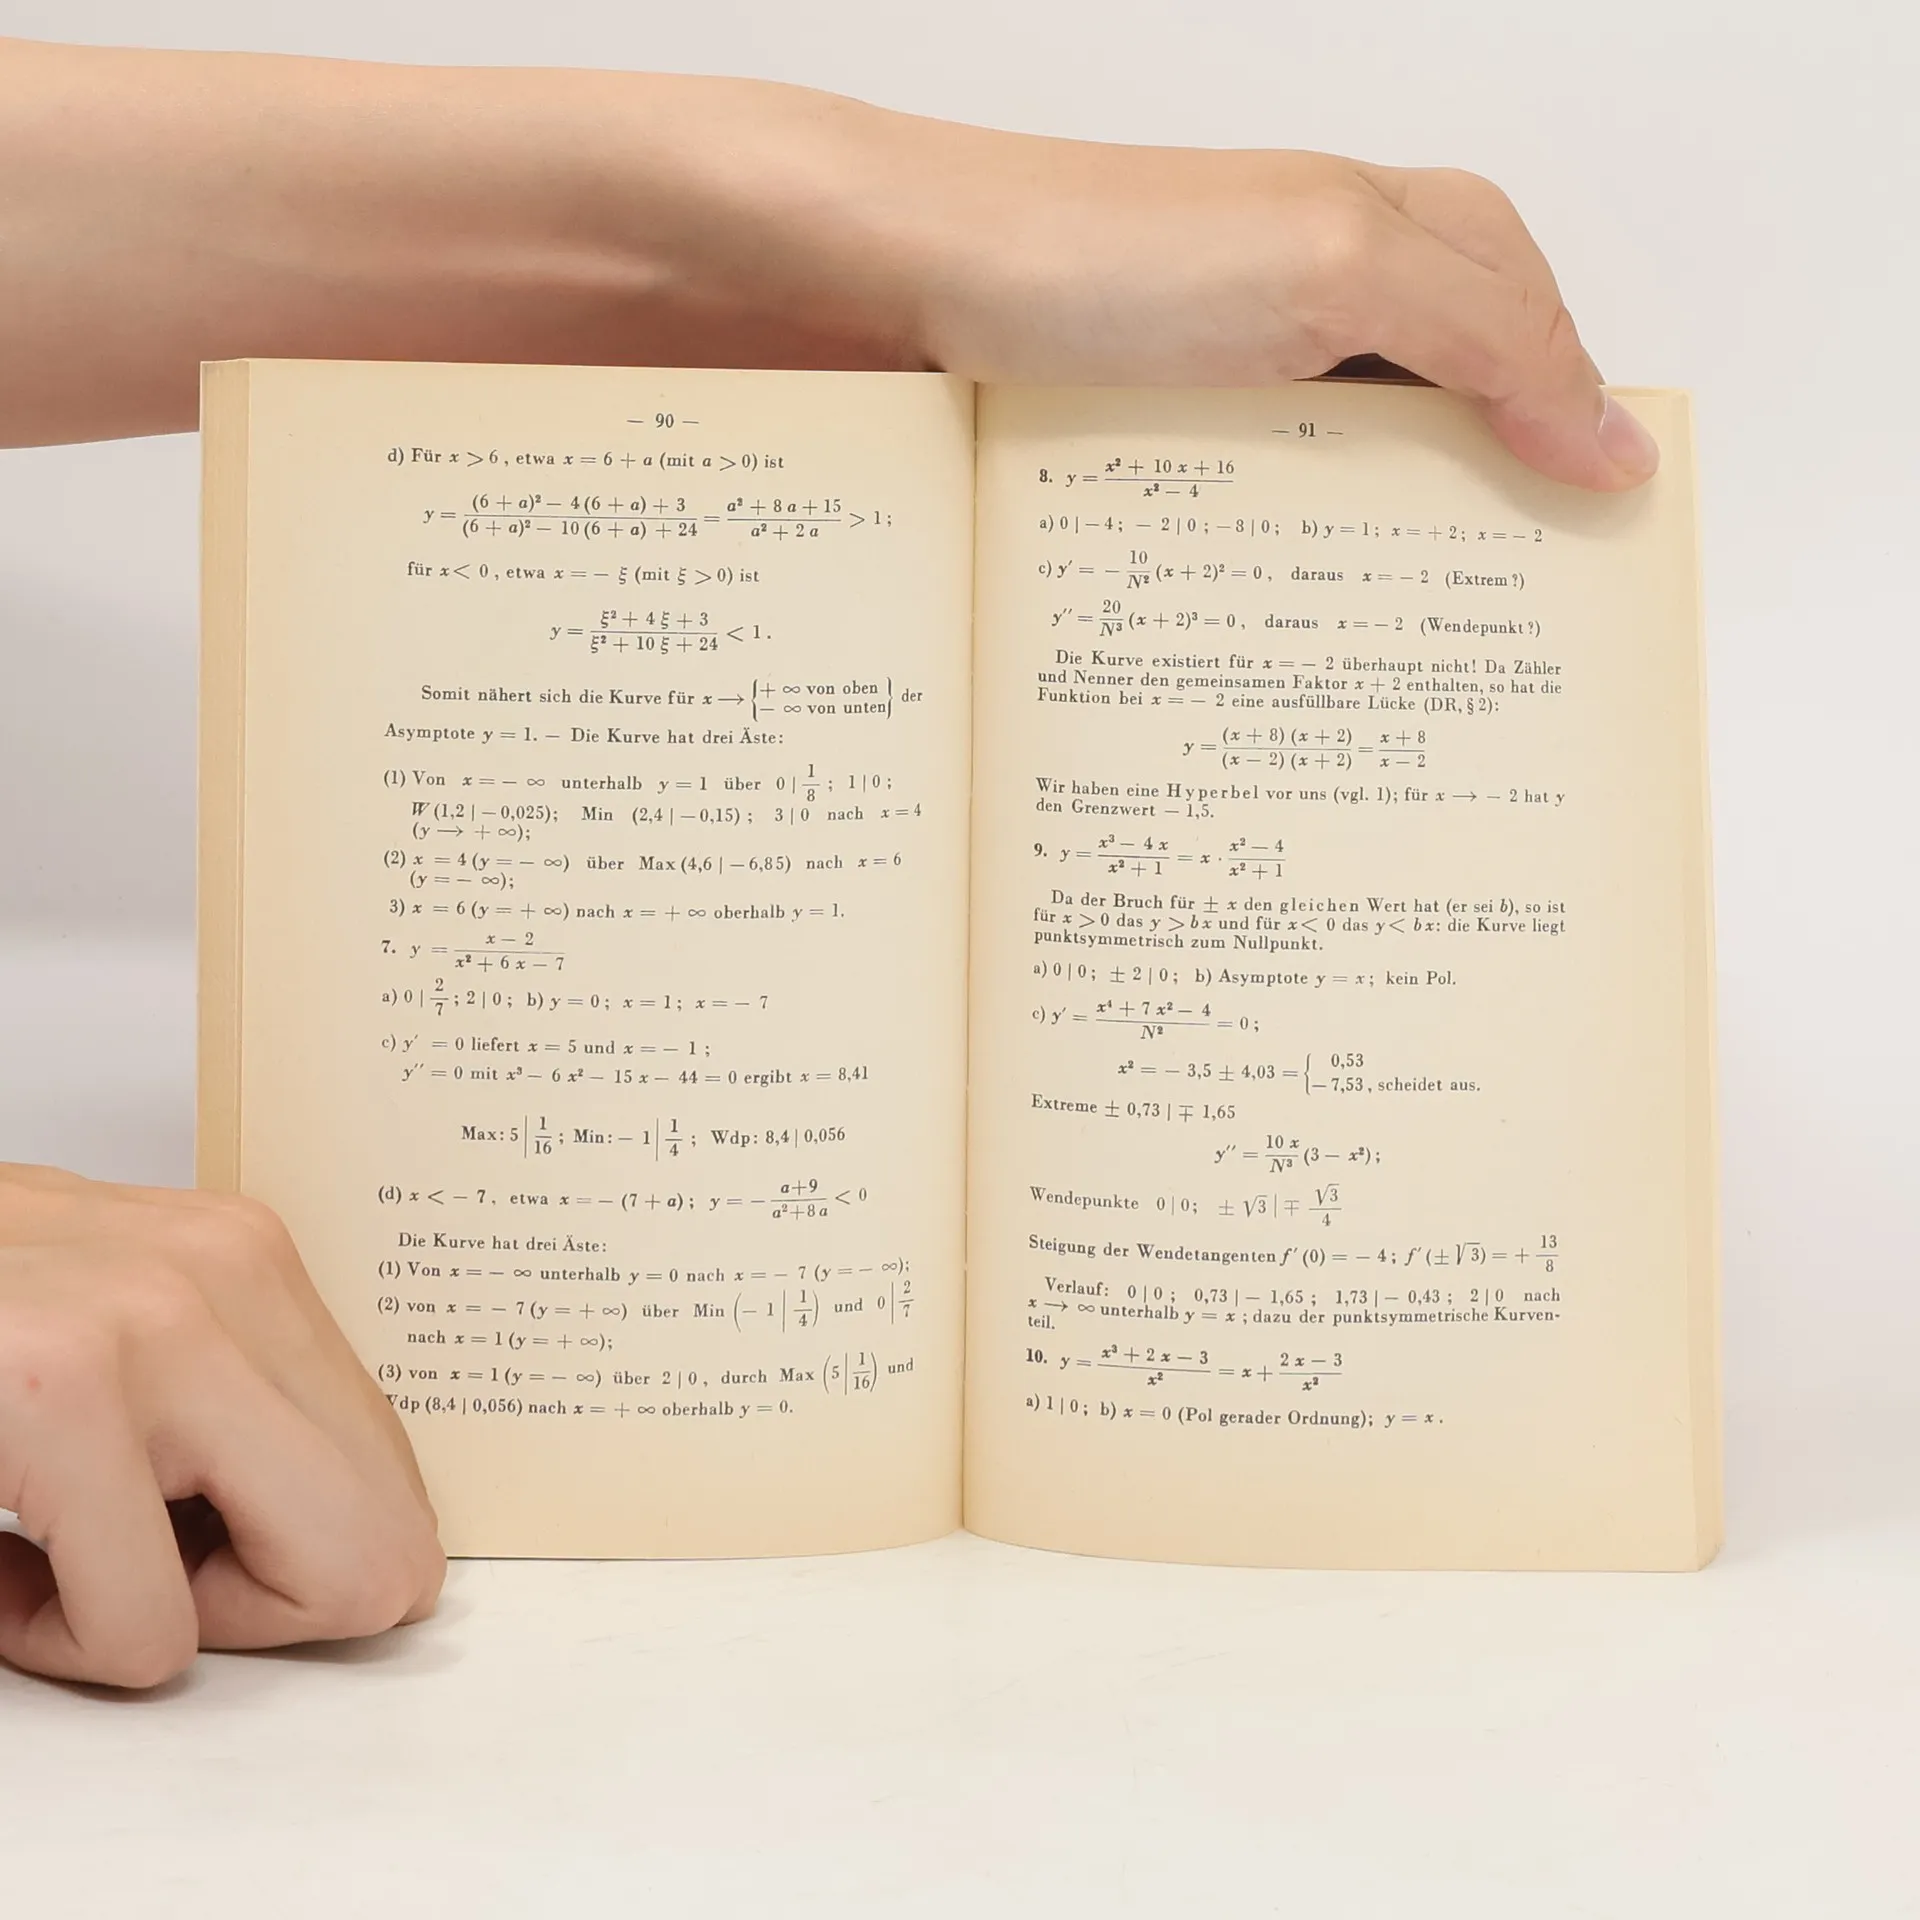 — 90 —
d) Für x > 6, etwa x = 6 + a (mit a > 0) ist
y = ((6 + a)² − 4 (6 + a) + 3) / ((6 + a)² − 10 (6 + a) + 24) = (a² + 8 a + 15) / (a² + 2 a) > 1;
für x < 0, etwa x = − ξ (mit ξ > 0) ist
y = (ξ² + 4 ξ + 3) / (ξ² + 10 ξ + 24) < 1.
Somit nähert sich die Kurve für x → { + ∞ von oben / − ∞ von unten } der
Asymptote y = 1. — Die Kurve hat drei Äste:
(1) Von x = − ∞ unterhalb y = 1 über 0 | 1/8; 1 | 0;
W (1,2 | − 0,025); Min (2,4 | − 0,15); 3 | 0 nach x = 4
(y → + ∞);
(2) x = 4 (y = − ∞) über Max (4,6 | − 6,85) nach x = 6
(y = − ∞);
3) x = 6 (y = + ∞) nach x = + ∞ oberhalb y = 1.
7. y = (x − 2) / (x² + 6 x − 7)
a) 0 | 2/7; 2 | 0; b) y = 0; x = 1; x = − 7
c) y′ = 0 liefert x = 5 und x = − 1;
y″ = 0 mit x³ − 6 x² − 15 x − 44 = 0 ergibt x = 8,41
Max: 5 | 1/16; Min: − 1 | 1/4; Wdp: 8,4 | 0,056
(d) x < − 7, etwa x = − (7 + a); y = − (a+9) / (a²+8 a) < 0
Die Kurve hat drei Äste:
(1) Von x = − ∞ unterhalb y = 0 nach x = − 7 (y = − ∞);
(2) von x = − 7 (y = + ∞) über Min (− 1 | 1/4) und 0 | 2/7
nach x = 1 (y = + ∞);
(3) von x = 1 (y = − ∞) über 2 | 0, durch Max (5 | 1/16) und
Wdp (8,4 | 0,056) nach x = + ∞ oberhalb y = 0.
— 91 —
8. y = (x² + 10 x + 16) / (x² − 4)
a) 0 | − 4; − 2 | 0; − 8 | 0; b) y = 1; x = + 2; x = − 2
c) y′ = − 10/N² (x + 2)² = 0, daraus x = − 2 (Extrem?)
y″ = 20/N³ (x + 2)³ = 0, daraus x = − 2 (Wendepunkt?)
Die Kurve existiert für x = − 2 überhaupt nicht! Da Zähler
und Nenner den gemeinsamen Faktor x + 2 enthalten, so hat die
Funktion bei x = − 2 eine ausfüllbare Lücke (DR, § 2):
y = ((x + 8) (x + 2)) / ((x − 2) (x + 2)) = (x + 8) / (x − 2)
Wir haben eine Hyperbel vor uns (vgl. 1); für x → − 2 hat y
den Grenzwert − 1,5.
9. y = (x³ − 4 x) / (x² + 1) = x · (x² − 4) / (x² + 1)
Da der Bruch für ± x den gleichen Wert hat (er sei b), so ist
für x > 0 das y > b x und für x < 0 das y < b x: die Kurve liegt
punktsymmetrisch zum Nullpunkt.
a) 0 | 0; ± 2 | 0; b) Asymptote y = x; kein Pol.
c) y′ = (x⁴ + 7 x² − 4) / N² = 0;
x² = − 3,5 ± 4,03 = { 0,53 / − 7,53, scheidet aus.
Extreme ± 0,73 | ∓ 1,65
y″ = 10 x / N³ (3 − x²);
Wendepunkte 0 | 0; ± √3 | ∓ √3/4
Steigung der Wendetangenten f′ (0) = − 4; f′ (± √3) = + 13/8
Verlauf: 0 | 0; 0,73 | − 1,65; 1,73 | − 0,43; 2 | 0 nach
x → ∞ unterhalb y = x; dazu der punktsymmetrische Kurven-
teil.
10. y = (x³ + 2 x − 3) / x² = x + (2 x − 3) / x²
a) 1 | 0; b) x = 0 (Pol gerader Ordnung); y = x.